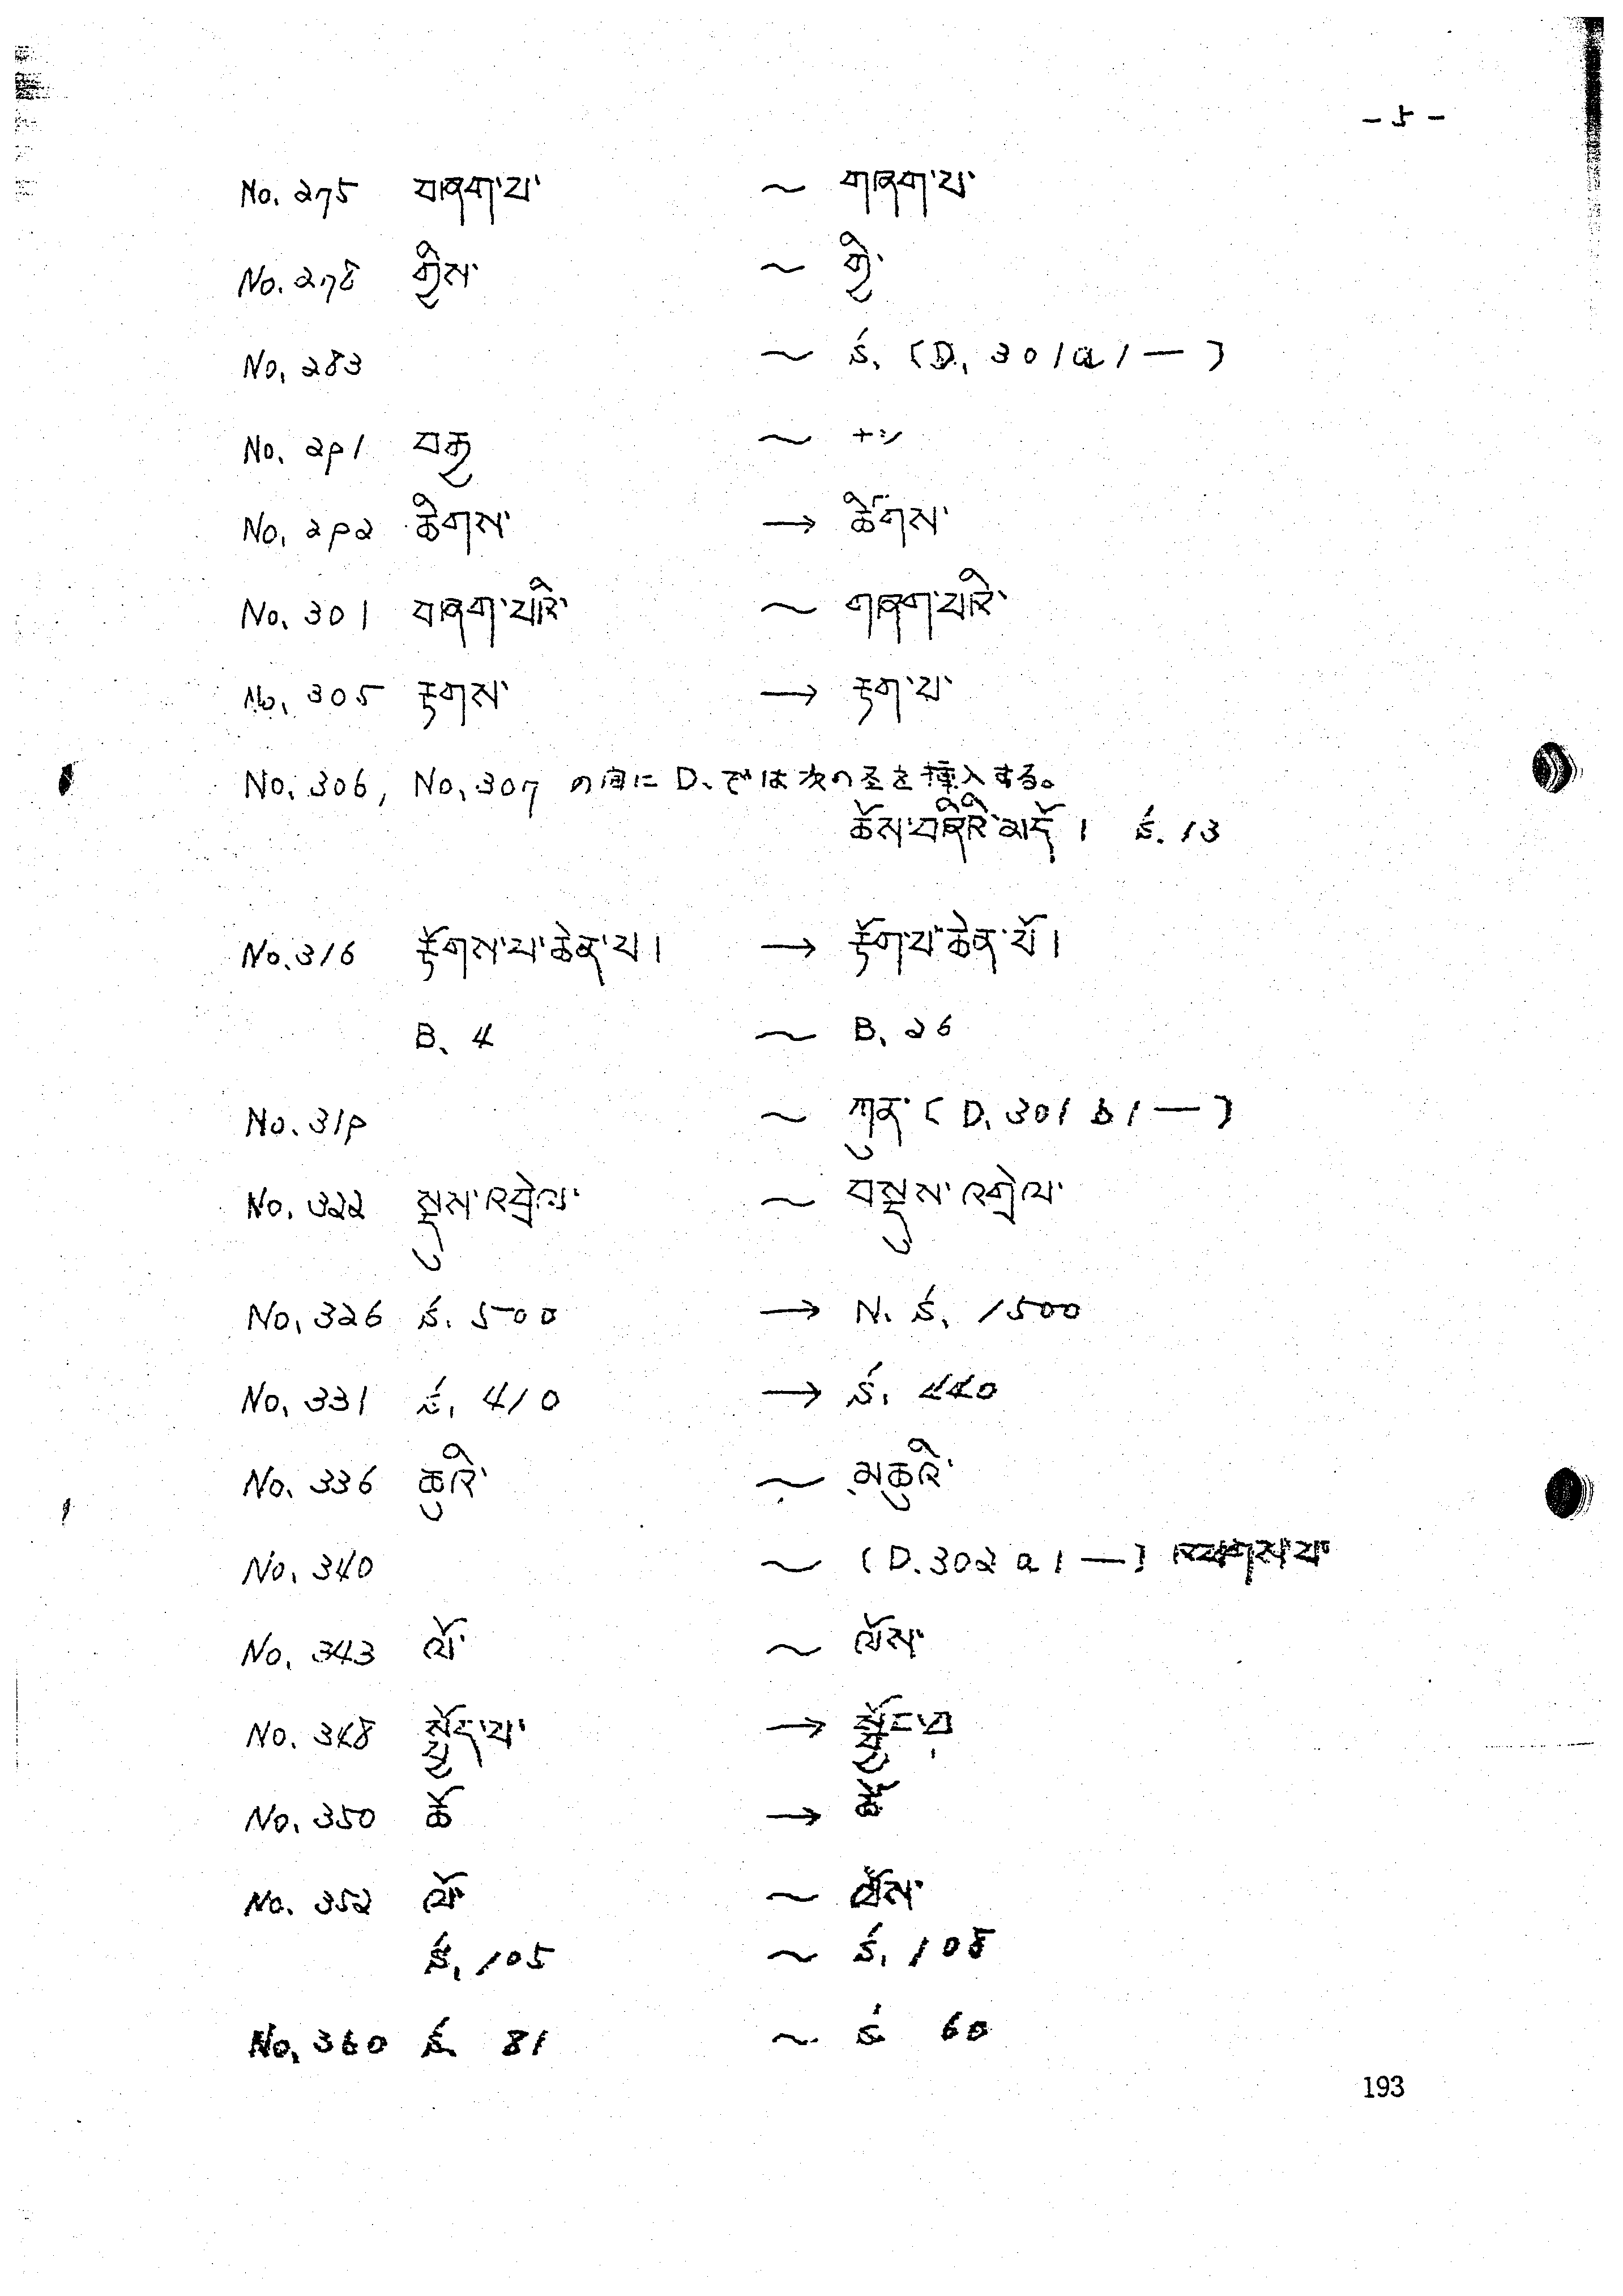 - 5 -
No. 275 བཞག་པ་ ~ གཞག་པ་
No. 278 གྱིས་ ~ གྱི་
No. 283 ~ ś. (D. 301a1—)
No. 291 བརྒྱ ~ ナシ
No. 292 ཚིགས་ → ཚོགས་
No. 301 བཞག་པའི་ ~ གཞག་པའི་
No. 305 རྟགས་ → རྟག་པ་
No. 306, No. 307 の間に D. では次の圣を挿入する。
ཆོས་བཞིའི་མདོ། ś. 13
No. 316 རྟོགས་པ་ཆེན་པ། → རྟོག་པ་ཆེན་པོ།
B. 4 ~ B. 26
No. 319 ~ ཀུན་ (D. 301b1—)
No. 322 སྡུས་འགྲེལ་ ~ བསྡུས་འགྲེལ་
No. 326 ś. 500 → N. ś. 1500
No. 331 ś. 410 → ś. 440
No. 336 ཆུའི་ ~ མཆུའི་
No. 340 ~ (D. 302a1—)
No. 343 ལོ་ ~ ལོས་
No. 348 སྤྱོད་པ་ →
No. 350 ཆོ →
No. 352 ལོ་ ~ ལོས་
ś. 105 ~ ś. 108
No. 360 ś. 81 ~ ś 60
193